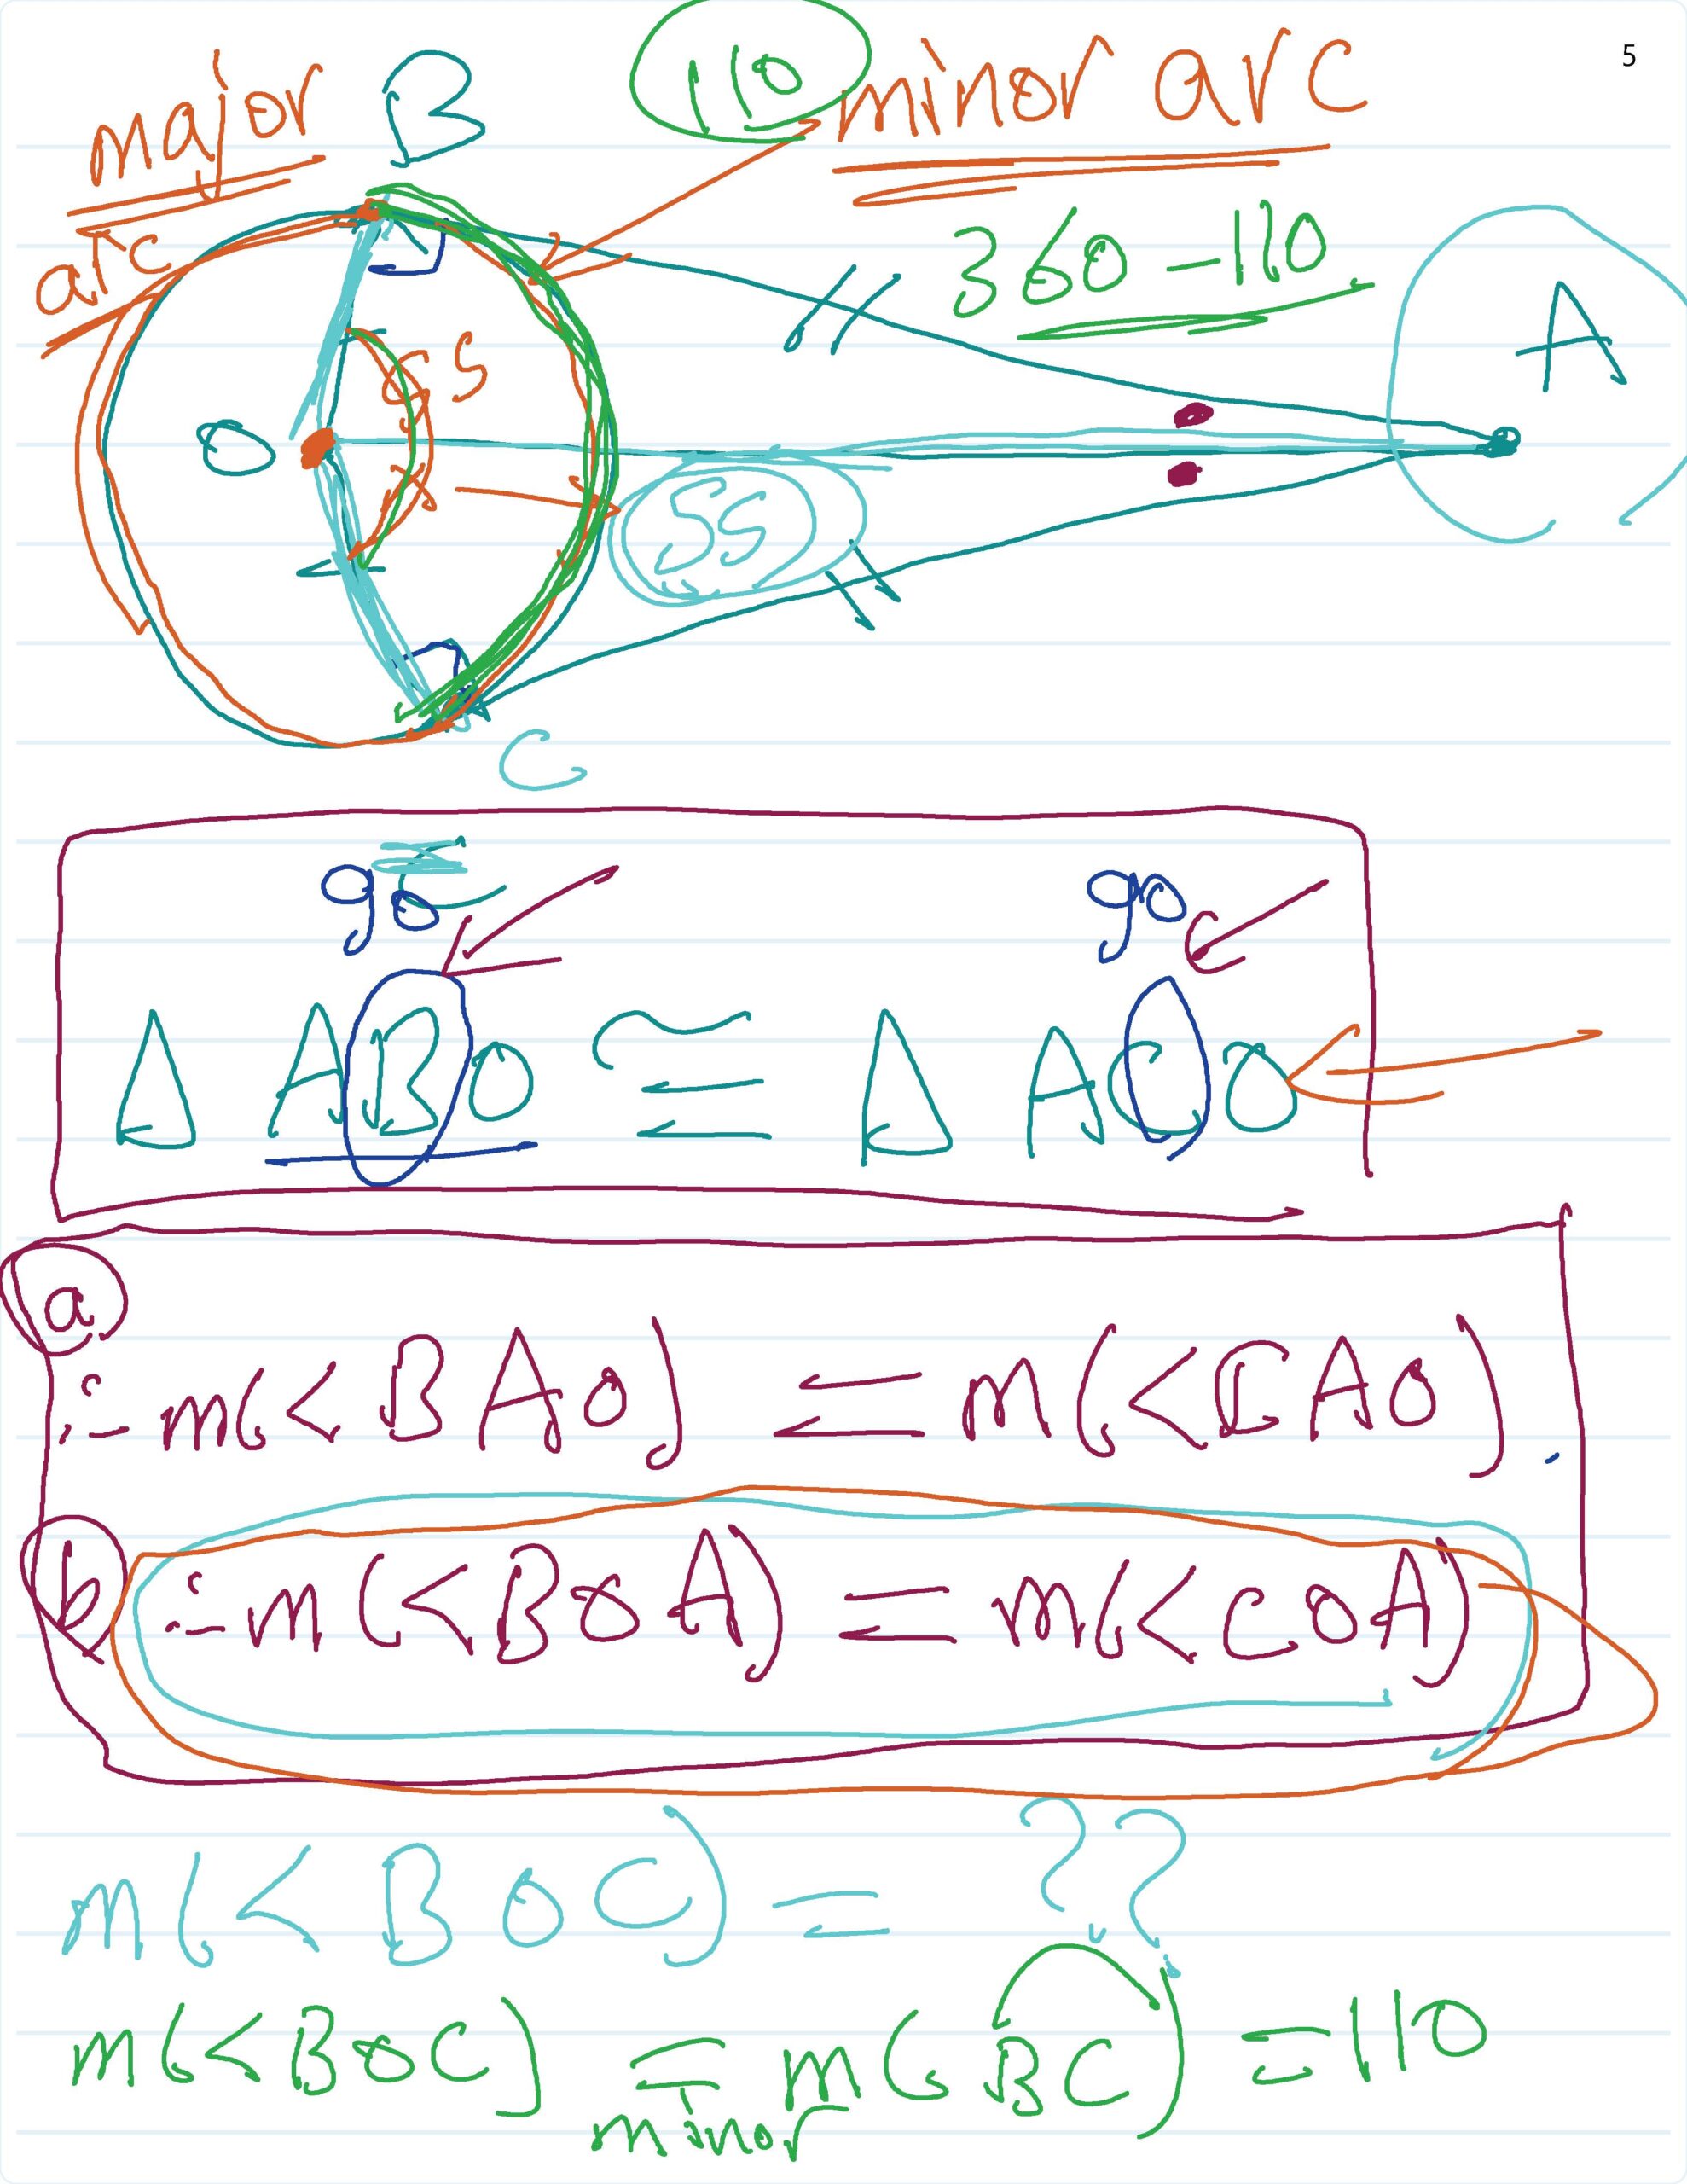 5
major
arc
B
110
minor arc
360-110
A
O
55
55
C
90
90
Δ ABO ≅ Δ ACO
a
∴ m(<BAO) = m(<CAO)
b
∴ m(<BOA) = m(<COA)
m(<BOC) = ??
m(<BOC) = m(BC) = 110
minor